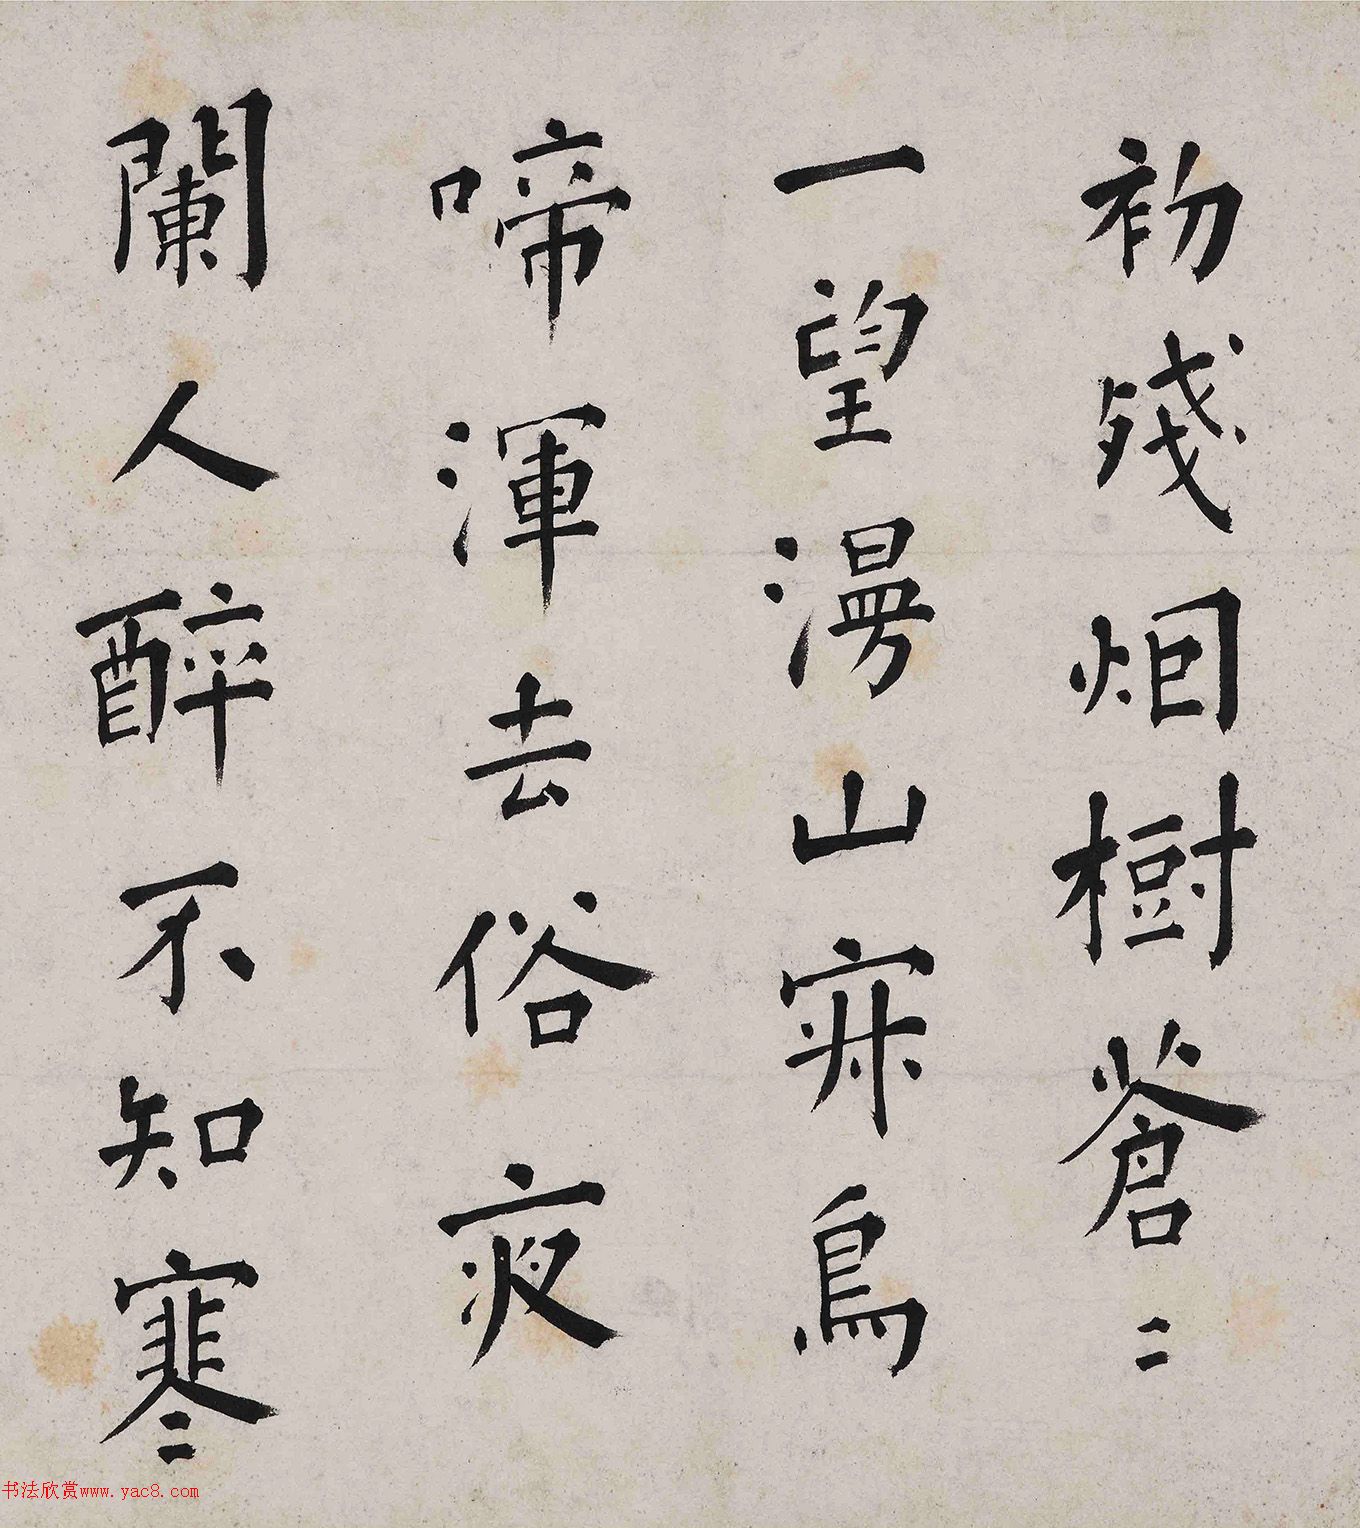 初殘烟樹蒼〻
一望漫山寂鳥
啼渾去俗夜
闌人醉不知寒
书法欣赏www.yac8.com